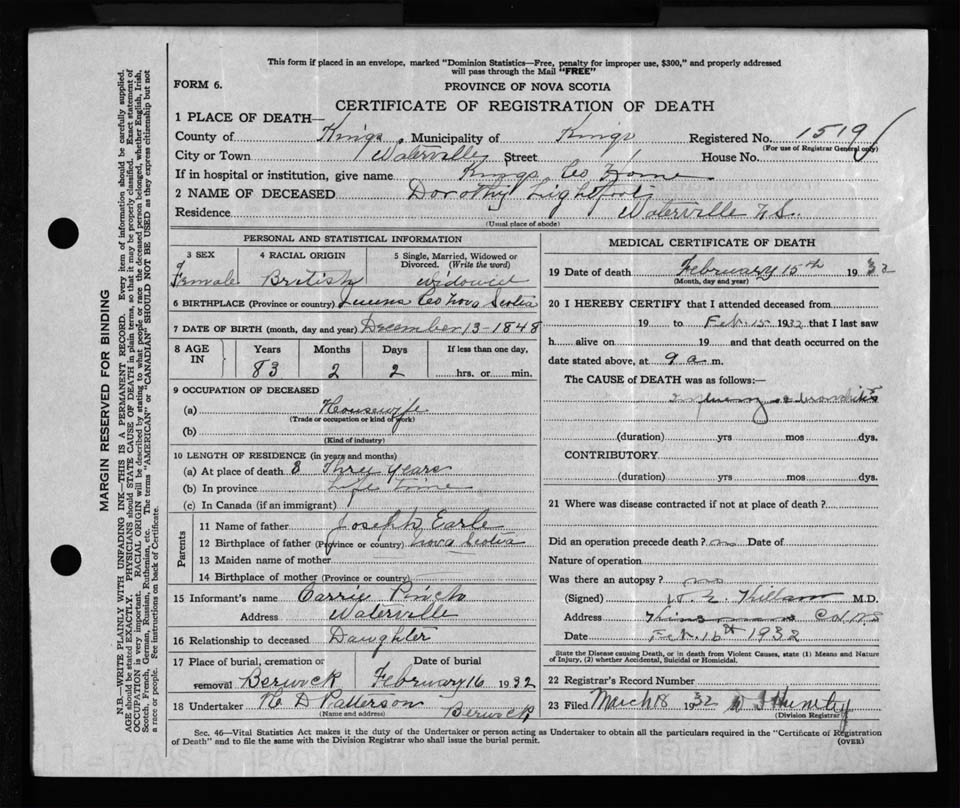 This form if placed in an envelope, marked "Dominion Statistics—Free, penalty for improper use, $300," and properly addressed
will pass through the Mail "FREE"
FORM 6.
PROVINCE OF NOVA SCOTIA
CERTIFICATE OF REGISTRATION OF DEATH
MARGIN RESERVED FOR BINDING
N.B.—WRITE PLAINLY WITH UNFADING INK—THIS IS A PERMANENT RECORD. Every item of information should be carefully supplied.
AGE should be stated EXACTLY. PHYSICIANS should STATE CAUSE OF DEATH in plain terms, so that it may be properly classified. Exact statement of
OCCUPATION is very important. RACIAL ORIGIN will be described by stating to what people or race the deceased person belonged, whether English, Irish,
Scotch, French, German, Russian, Ruthenian, etc. The terms "AMERICAN" or "CANADIAN" SHOULD NOT BE USED as they express citizenship but not
a race or people. See instructions on back of Certificate.
1 PLACE OF DEATH—
County of Kings, Municipality of Kings Registered No. 1519
(For use of Registrar General only)
City or Town Waterville Street House No.
If in hospital or institution, give name Kings Co Home
2 NAME OF DECEASED Dorothy Lightfoot
Residence Waterville N.S.
(Usual place of abode)
PERSONAL AND STATISTICAL INFORMATION
3 SEX 4 RACIAL ORIGIN 5 Single, Married, Widowed or
Divorced. (Write the word)
Female British Widowed
6 BIRTHPLACE (Province or country) Queens Co Nova Scotia
7 DATE OF BIRTH (month, day and year) December 13-1848
8 AGE IN Years Months Days If less than one day,
83 2 2 hrs. or min.
9 OCCUPATION OF DECEASED
(a) Housewife
(Trade or occupation or kind of work)
(b)
(Kind of industry)
10 LENGTH OF RESIDENCE (in years and months)
(a) At place of death 3 Three years
(b) In province Life time
(c) In Canada (if an immigrant)
Parents
11 Name of father Joseph Earle
12 Birthplace of father (Province or country) Nova Scotia
13 Maiden name of mother
14 Birthplace of mother (Province or country)
15 Informant's name Carrie Pinch
Address Waterville
16 Relationship to deceased Daughter
17 Place of burial, cremation or Date of burial
removal Berwick February 16 1932
18 Undertaker R D Patterson Berwick
(Name and address)
MEDICAL CERTIFICATE OF DEATH
19 Date of death February 15th 1932
(Month, day and year)
20 I HEREBY CERTIFY that I attended deceased from
19 to Feb. 15 1932 that I last saw
h alive on 19 and that death occurred on the
date stated above, at 9 a m.
The CAUSE of DEATH was as follows:—
(duration) yrs mos dys.
CONTRIBUTORY
(duration) yrs mos dys.
21 Where was disease contracted if not at place of death?
Did an operation precede death? no Date of
Nature of operation
Was there an autopsy? no
(Signed) Killam M.D.
Address Co. N S
Date Feb. 16th 1932
State the Disease causing Death, or in death from Violent Causes, state (1) Means and Nature
of Injury, (2) whether Accidental, Suicidal or Homicidal.
22 Registrar's Record Number
23 Filed March 8 1932
(Division Registrar)
Sec. 46—Vital Statistics Act makes it the duty of the Undertaker or person acting as Undertaker to obtain all the particulars required in the "Certificate of Registration
of Death" and to file the same with the Division Registrar who shall issue the burial permit.
(OVER)